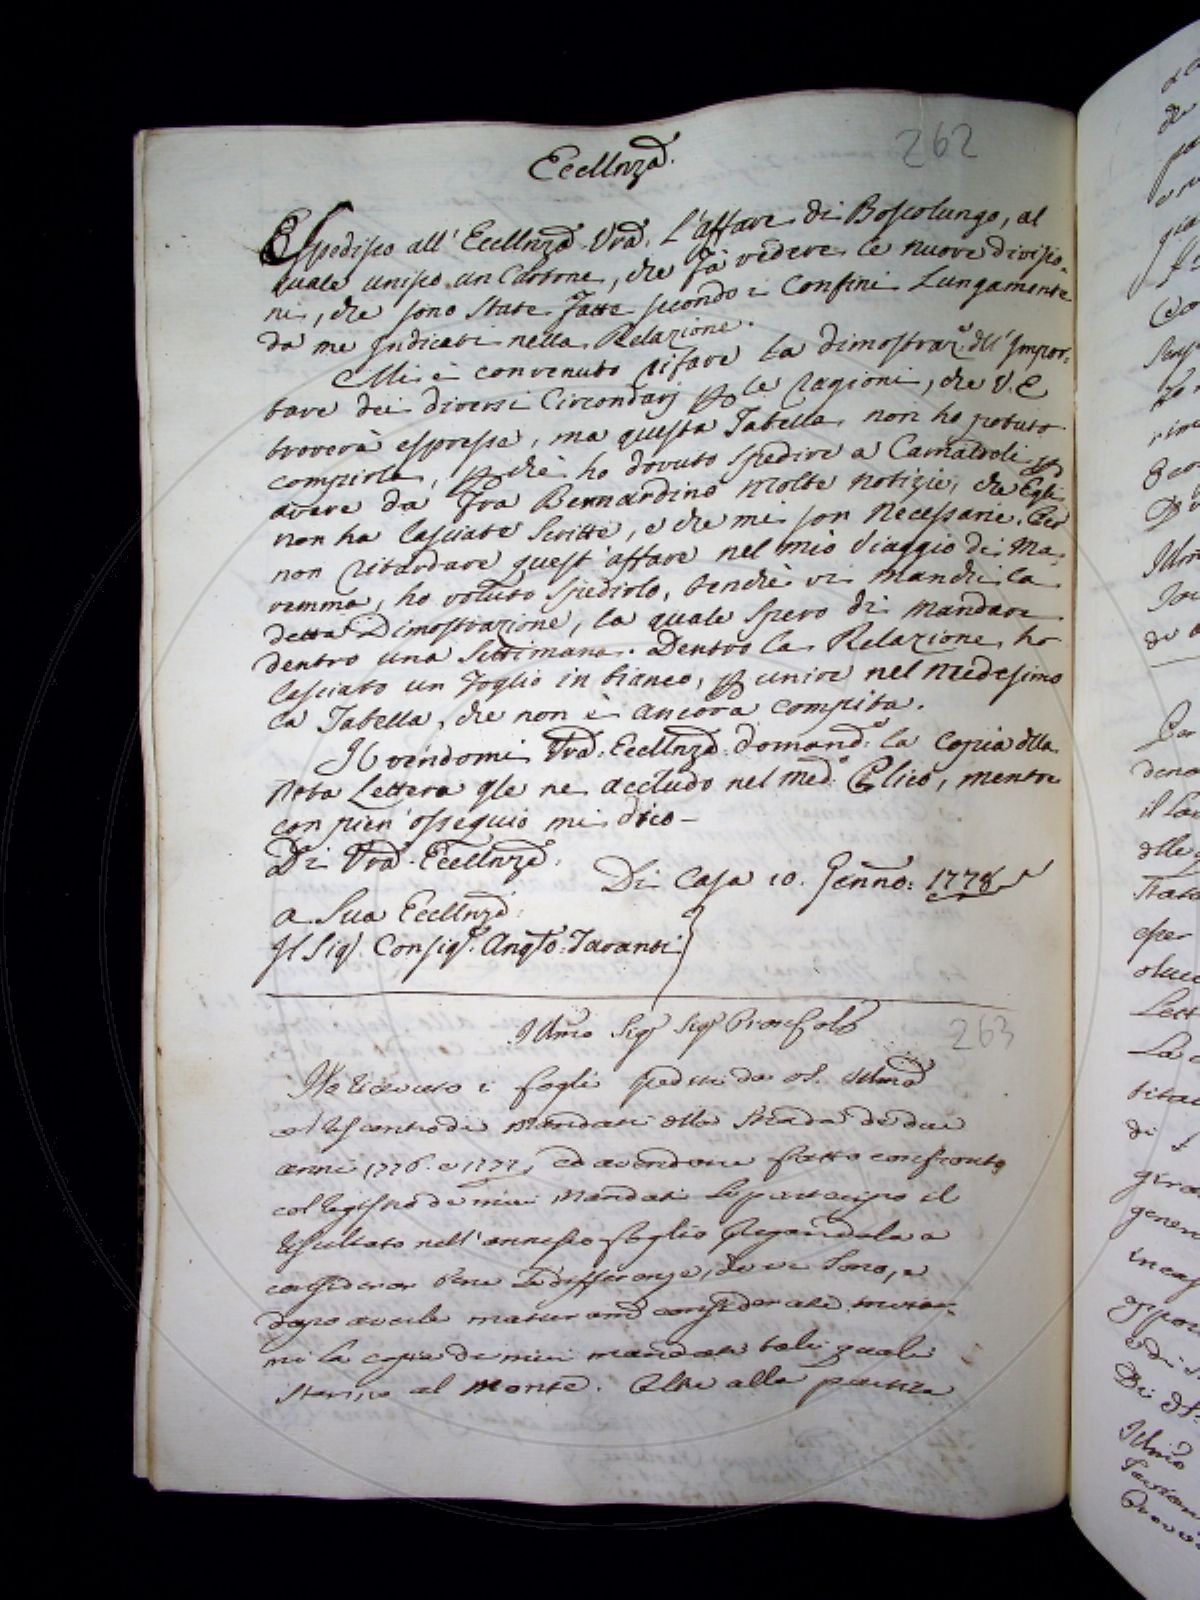 262
Eccellnza.
Spedisco all' Eccellnza Vrã. L'affare di Boscolungo, al
quale unisco un Cartone, che fà vedere le nuove divisio-
ni, che sono state fatte secondo i Confini Lungamente
da me Indicati nella Relazione.
Mi è convenuto rifare la dimostraz.e dell' Impor-
tare dei diversi Circondarj p le ragioni, che V. E
troverà espresse, ma questa Tabella non ho potuto
compirla, p chè ho dovuto spedire a Camaldoli p
avere da Fra Bernardino molte notizie, che Egli
non ha lasciate scritte, e che mi son necessarie. Per
non ritardare quest' affare nel mio Viaggio di Ma-
remma, ho voluto spedirlo, benchè vi manchi la
detta Dimostrazione, la quale spero di mandare
dentro una settimana. Dentro la Relazione ho
lasciato un foglio in bianco, p unire nel medesimo
la Tabella, che non è ancora compita.
Avendomi Vrã. Eccellnza domand.o la copia dlla
nota Lettera gle ne accludo nel med.o Plico, mentre
con pien' ossequio mi dico –
Di Vrã. Eccellnza.
Di Casa 10. Genno: 1778
a Sua Eccellnza.
Il Sig. Consig. Anglo: Tavanti
Illmo Sig. Sig. Pron Col
263
Ho ricevuto i fogli spediti da VS. Illma
al riscontro di mandati della strada de due
anni 1776. e 1777, ed avendone fatto confronto
col registro de miei mandati le partecipo il
resultato nell'annesso foglio pregandola a
considerar bene le differenze, che vi sono, e
dopo averle maturamte considerate inviar-
mi la copia de miei mandati tali quali
sterino al Monte. Oltre alla partita